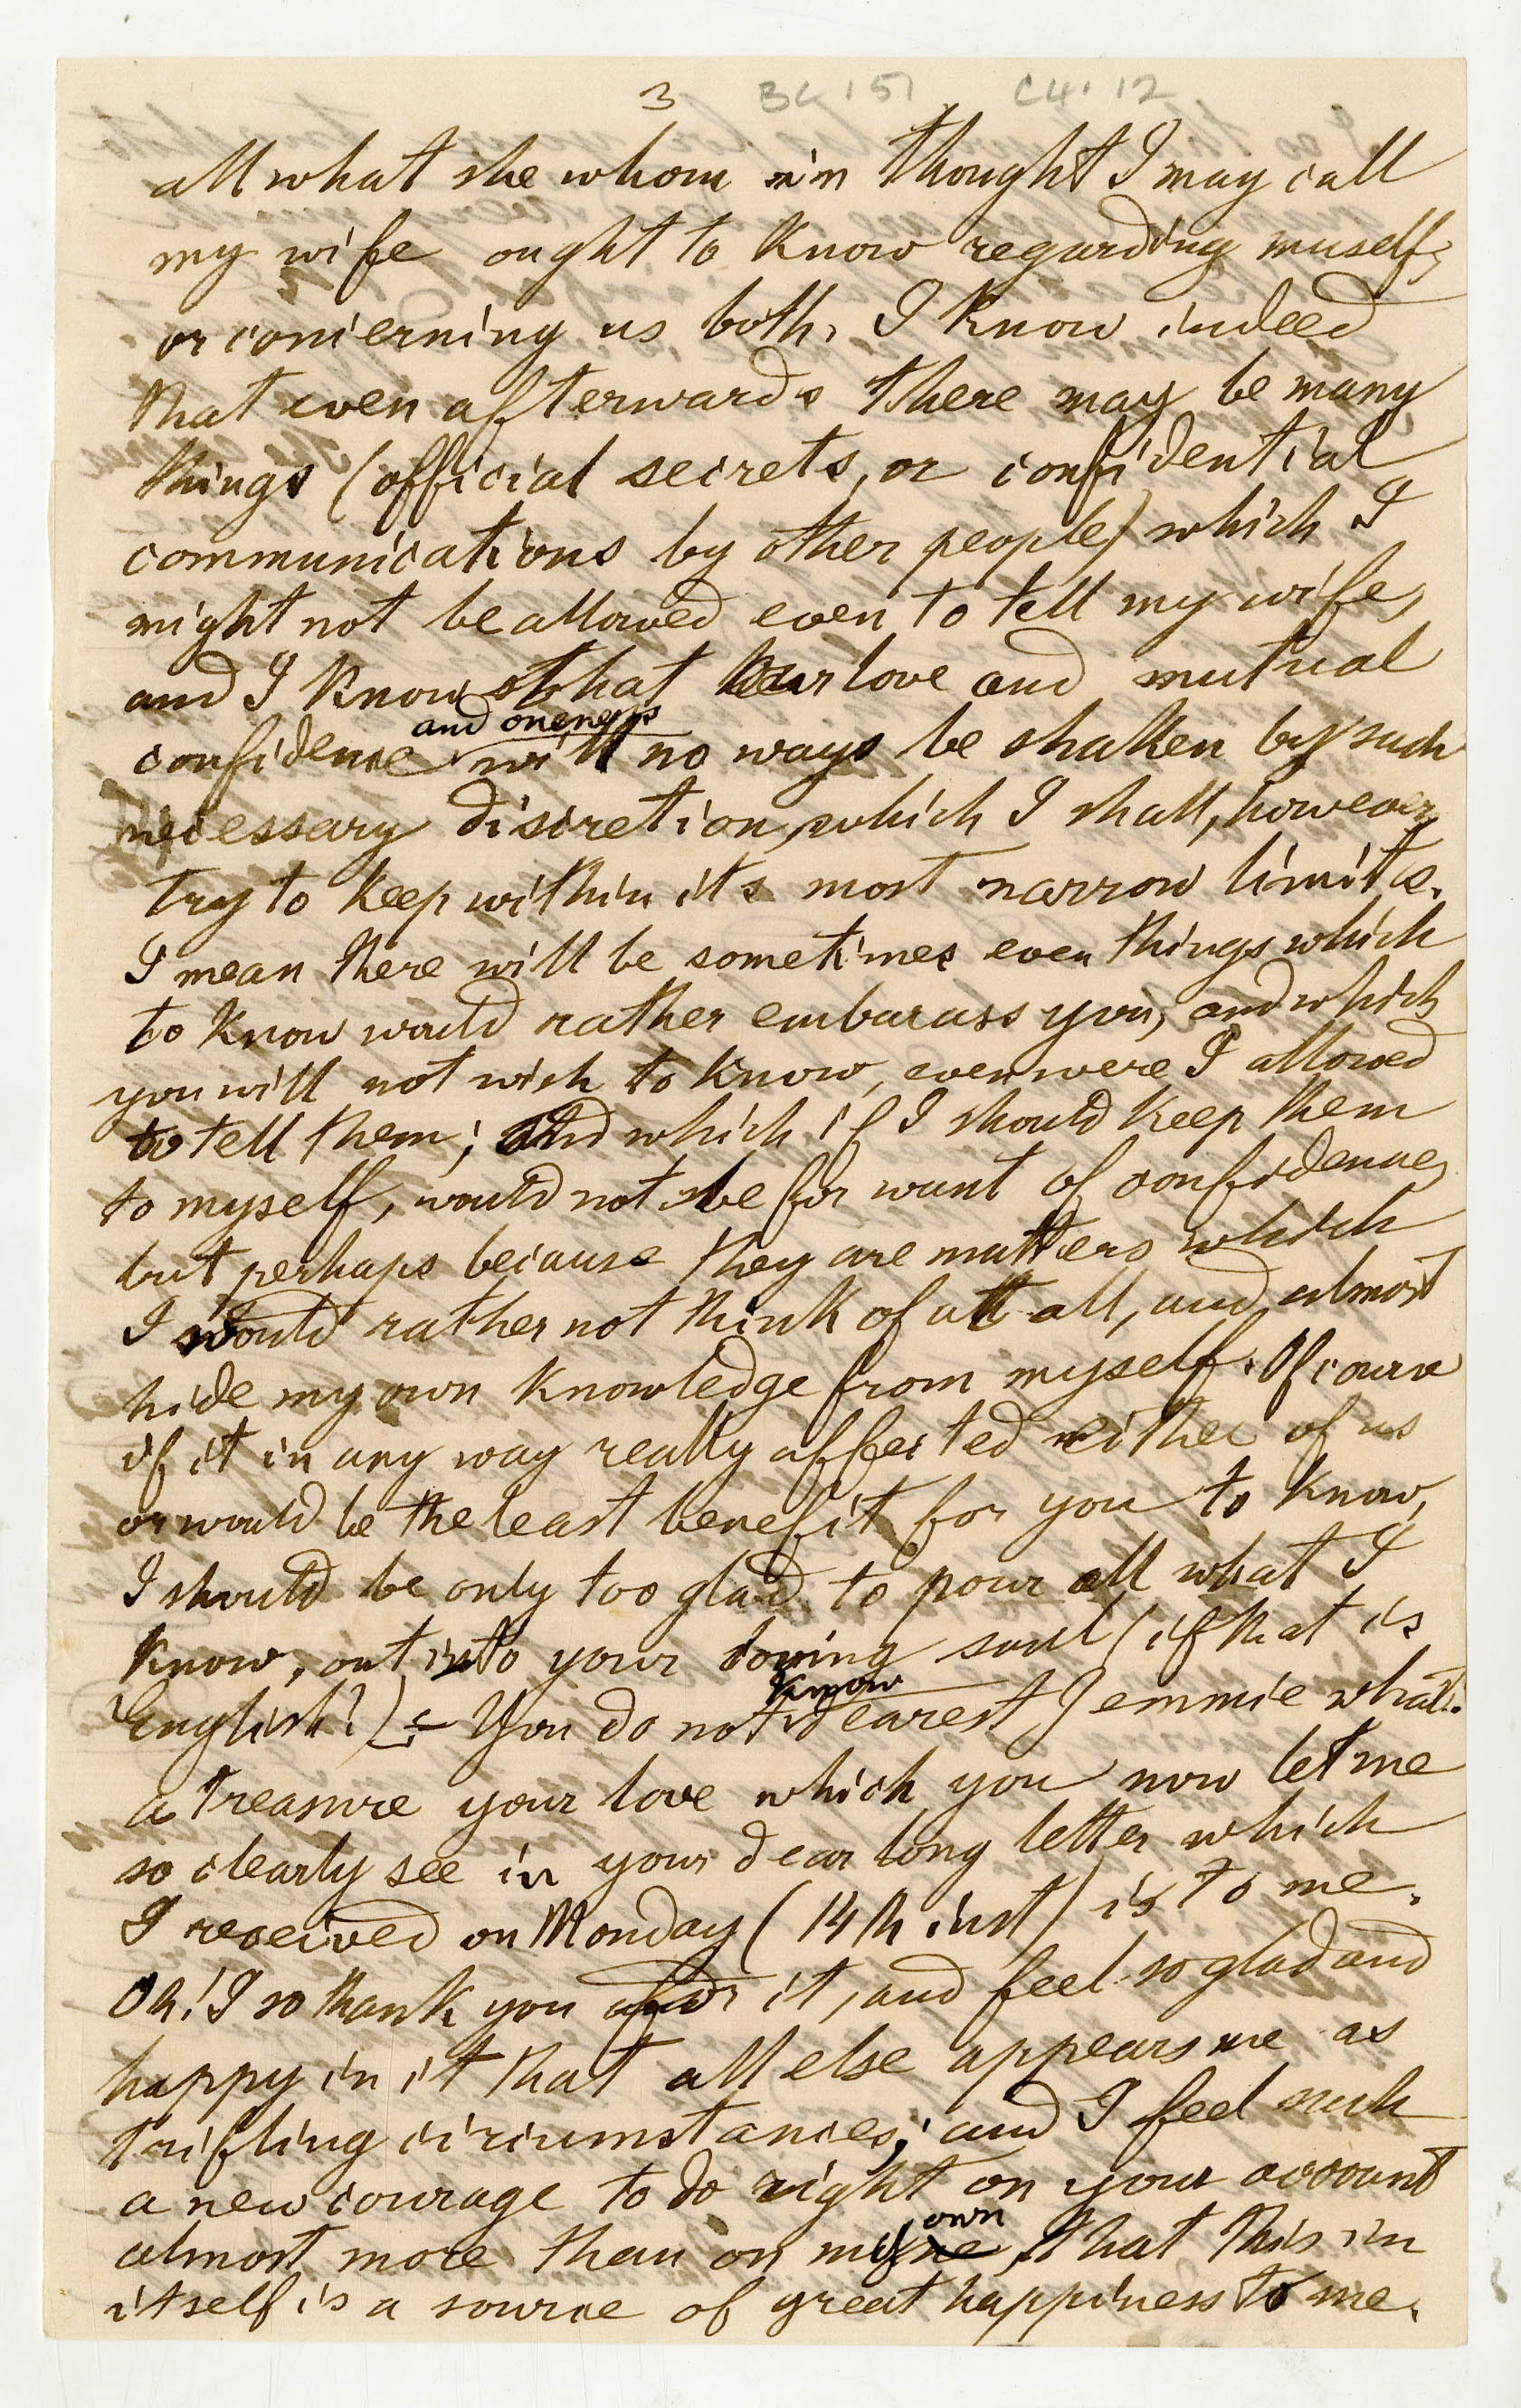 3 BC 151 C4.12
all what she whom in thought I may call
my wife ought to know regarding muself,
or concerning us both. I know indeed
that even afterwards there may be many
things (official secrets, or confidential
communications by other people) which I
might not be allowed even to tell my wife,
and I know that our love and mutual
and oneness
confidence will no ways be shaken by such
necessary discretion, which I shall, however,
try to keep within its most narrow limits.
I mean there will be sometimes even things which
to know would rather embarass you, and which
you will not wish to know, even were I allowed
to tell them; and which if I should keep them
to myself, would not be for want of confidence,
but perhaps because they are matters which
I would rather not think of at all, and almost
hide my own knowledge from myself. Of course
if it in any way really affected either of us
or would be the least benefit for you to know,
I should be only too glad to pour all what I
know, out into your loving soul (if that is
know
English?) – You do not dearest Jemmie what
a treasure your love which you now let me
so clearly see in your dear long letter which
I received on Monday (14th inst) is to me.
Oh! I so thank you for it, and feel so glad and
happy in it that all else appears me as
trifling circumstances; and I feel such
a new courage to do right on your account
own
almost more than on my, that this in
itself is a source of great happiness to me.